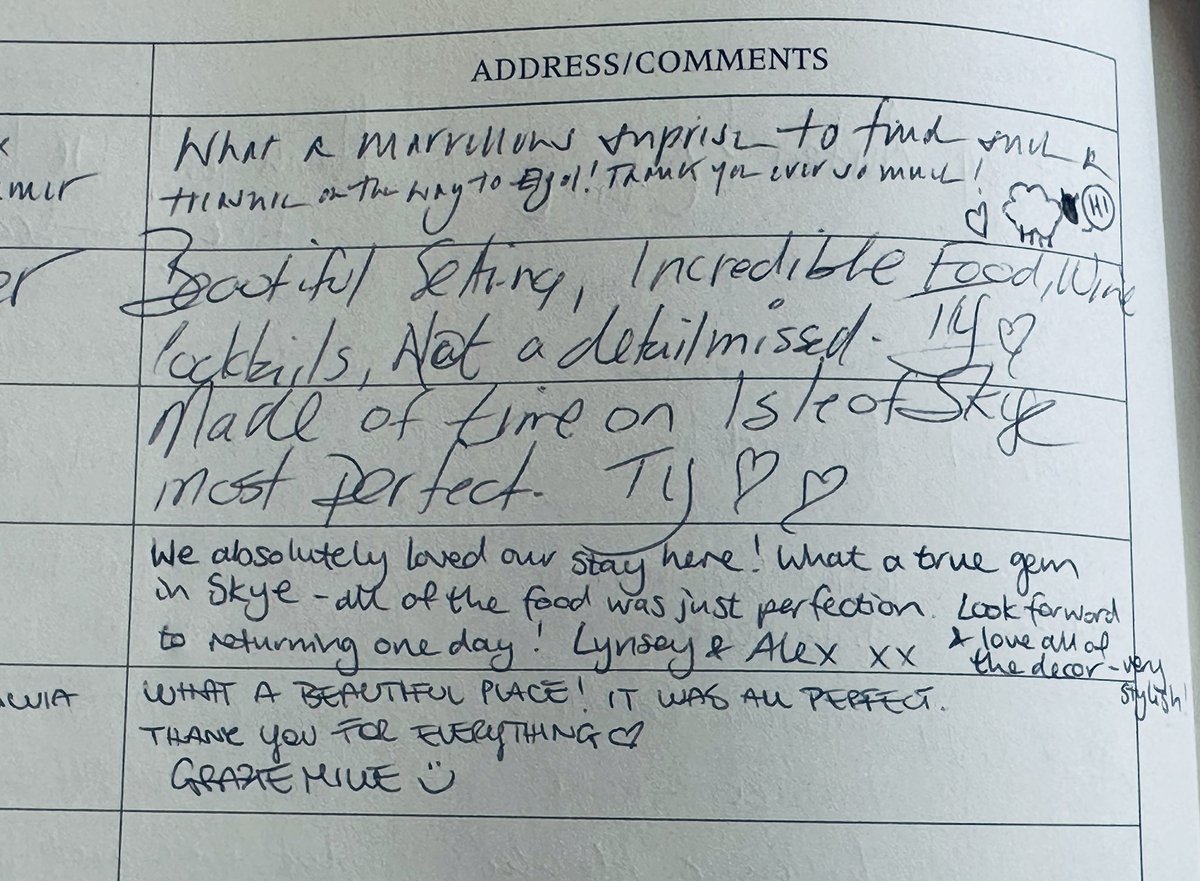 ADDRESS/COMMENTS
What a marvellous surprise to find such a
on the way to Egol! Thank you ever so much!
HI
mir
er
Beautiful Setting, Incredible Food, Wine
Cocktails, Not a detail missed. TY
Made of time on Isle of Skye
most perfect. Ty
We absolutely loved our stay here! What a true gem
in Skye - all of the food was just perfection. Look forward
to returning one day! Lynsey & Alex xx & love all of
the decor - very
stylish!
WHAT A BEAUTIFUL PLACE! IT WAS ALL PERFECT.
THANK YOU FOR EVERYTHING
GRAZIE MILLE